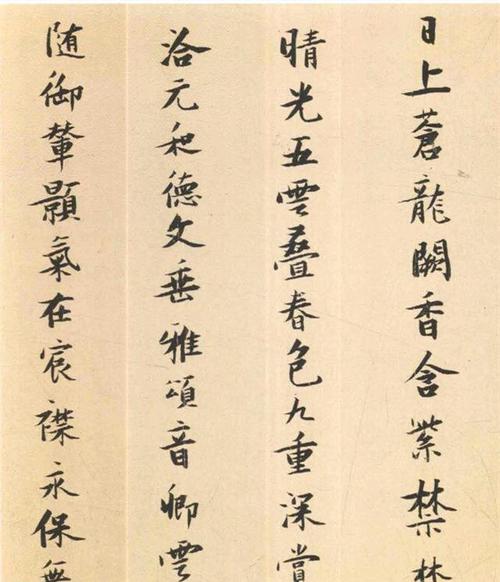 日上蒼龍闕香含紫禁林
晴光五雲叠春色九重深賞
洽元和德文垂雅頌音卿雲
随御輦顥氣在宸襟永保無